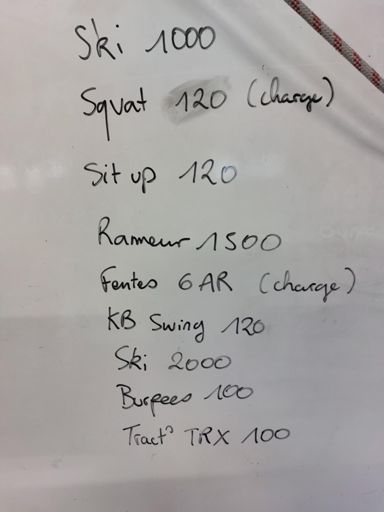 Ski 1000
Squat 120 (charge)
Sit up 120
Rameur 1500
Fentes 6 AR (charge)
KB Swing 120
Ski 2000
Burpees 100
Tract° TRX 100